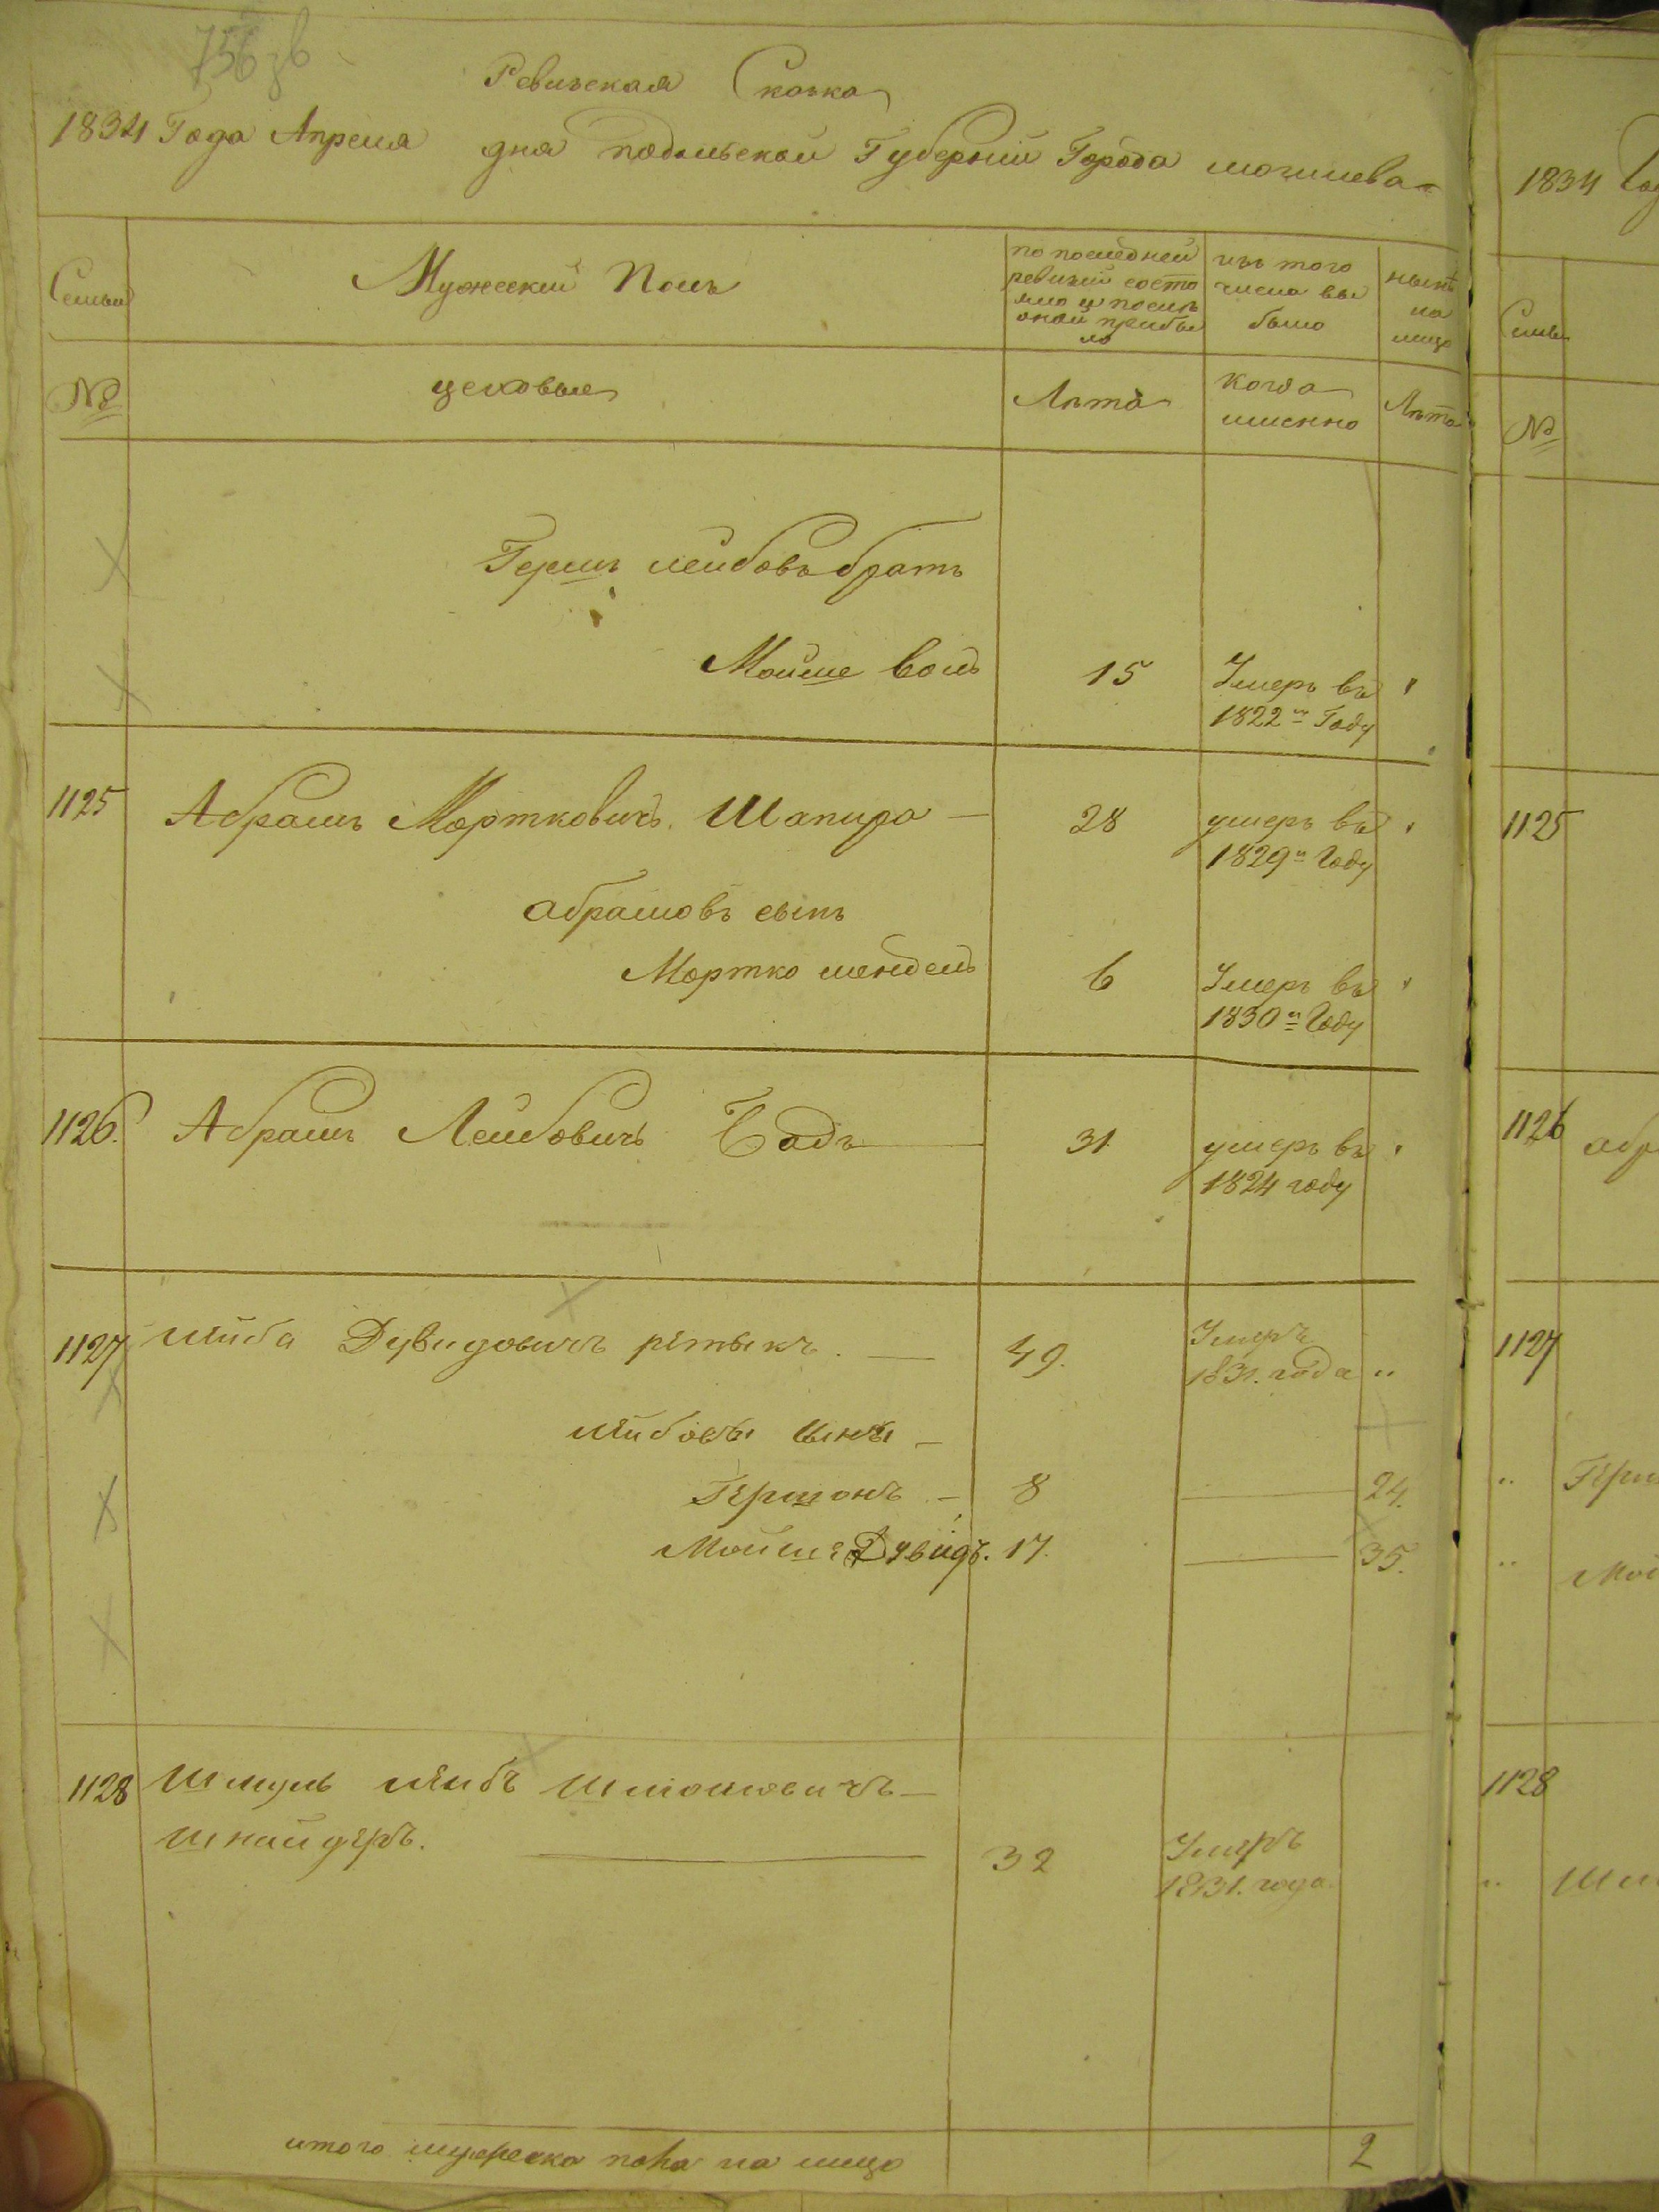 756 зв
Ревизская Сказка
1834 Года Апреля дня подольской Губернии Города могилева
1834 Год
Семьи
Мужеский Полъ
по последней
ревизии состо
яло и послѣ
оной прибы
ло
изъ того
числа вы
было
нынѣ
на
лицо
Семьи
№
цеховые
Лѣта
когда
именно
Лѣта
№
Гершъ лейбовъ братъ
Мойше волъ 15 Умеръ въ
1822м Году
1125 Абрамъ Мортковичъ Шапиро — 28 умеръ въ
1829м Году
1125
абрамовъ сынъ
Мортко мендель 6 Умеръ въ
1830м Году
1126. Абрамъ Лейбовичъ 31 умеръ въ
1824 году
1126 абр
1127 Лейба Дувидовичъ — 49. Умеръ
1831. года „
1127
лейбовы сыны —
Гершонъ — 8 — 24.
„ Герш
Мойше Дувидъ. 17. — 35.
„ Мой
1128 Шмуль лейбъ Шмойловичъ —
1128
Шнайдеръ. — 32 Умеръ
1831. года.
„ Шм
итого мужеска пола на лицо 2